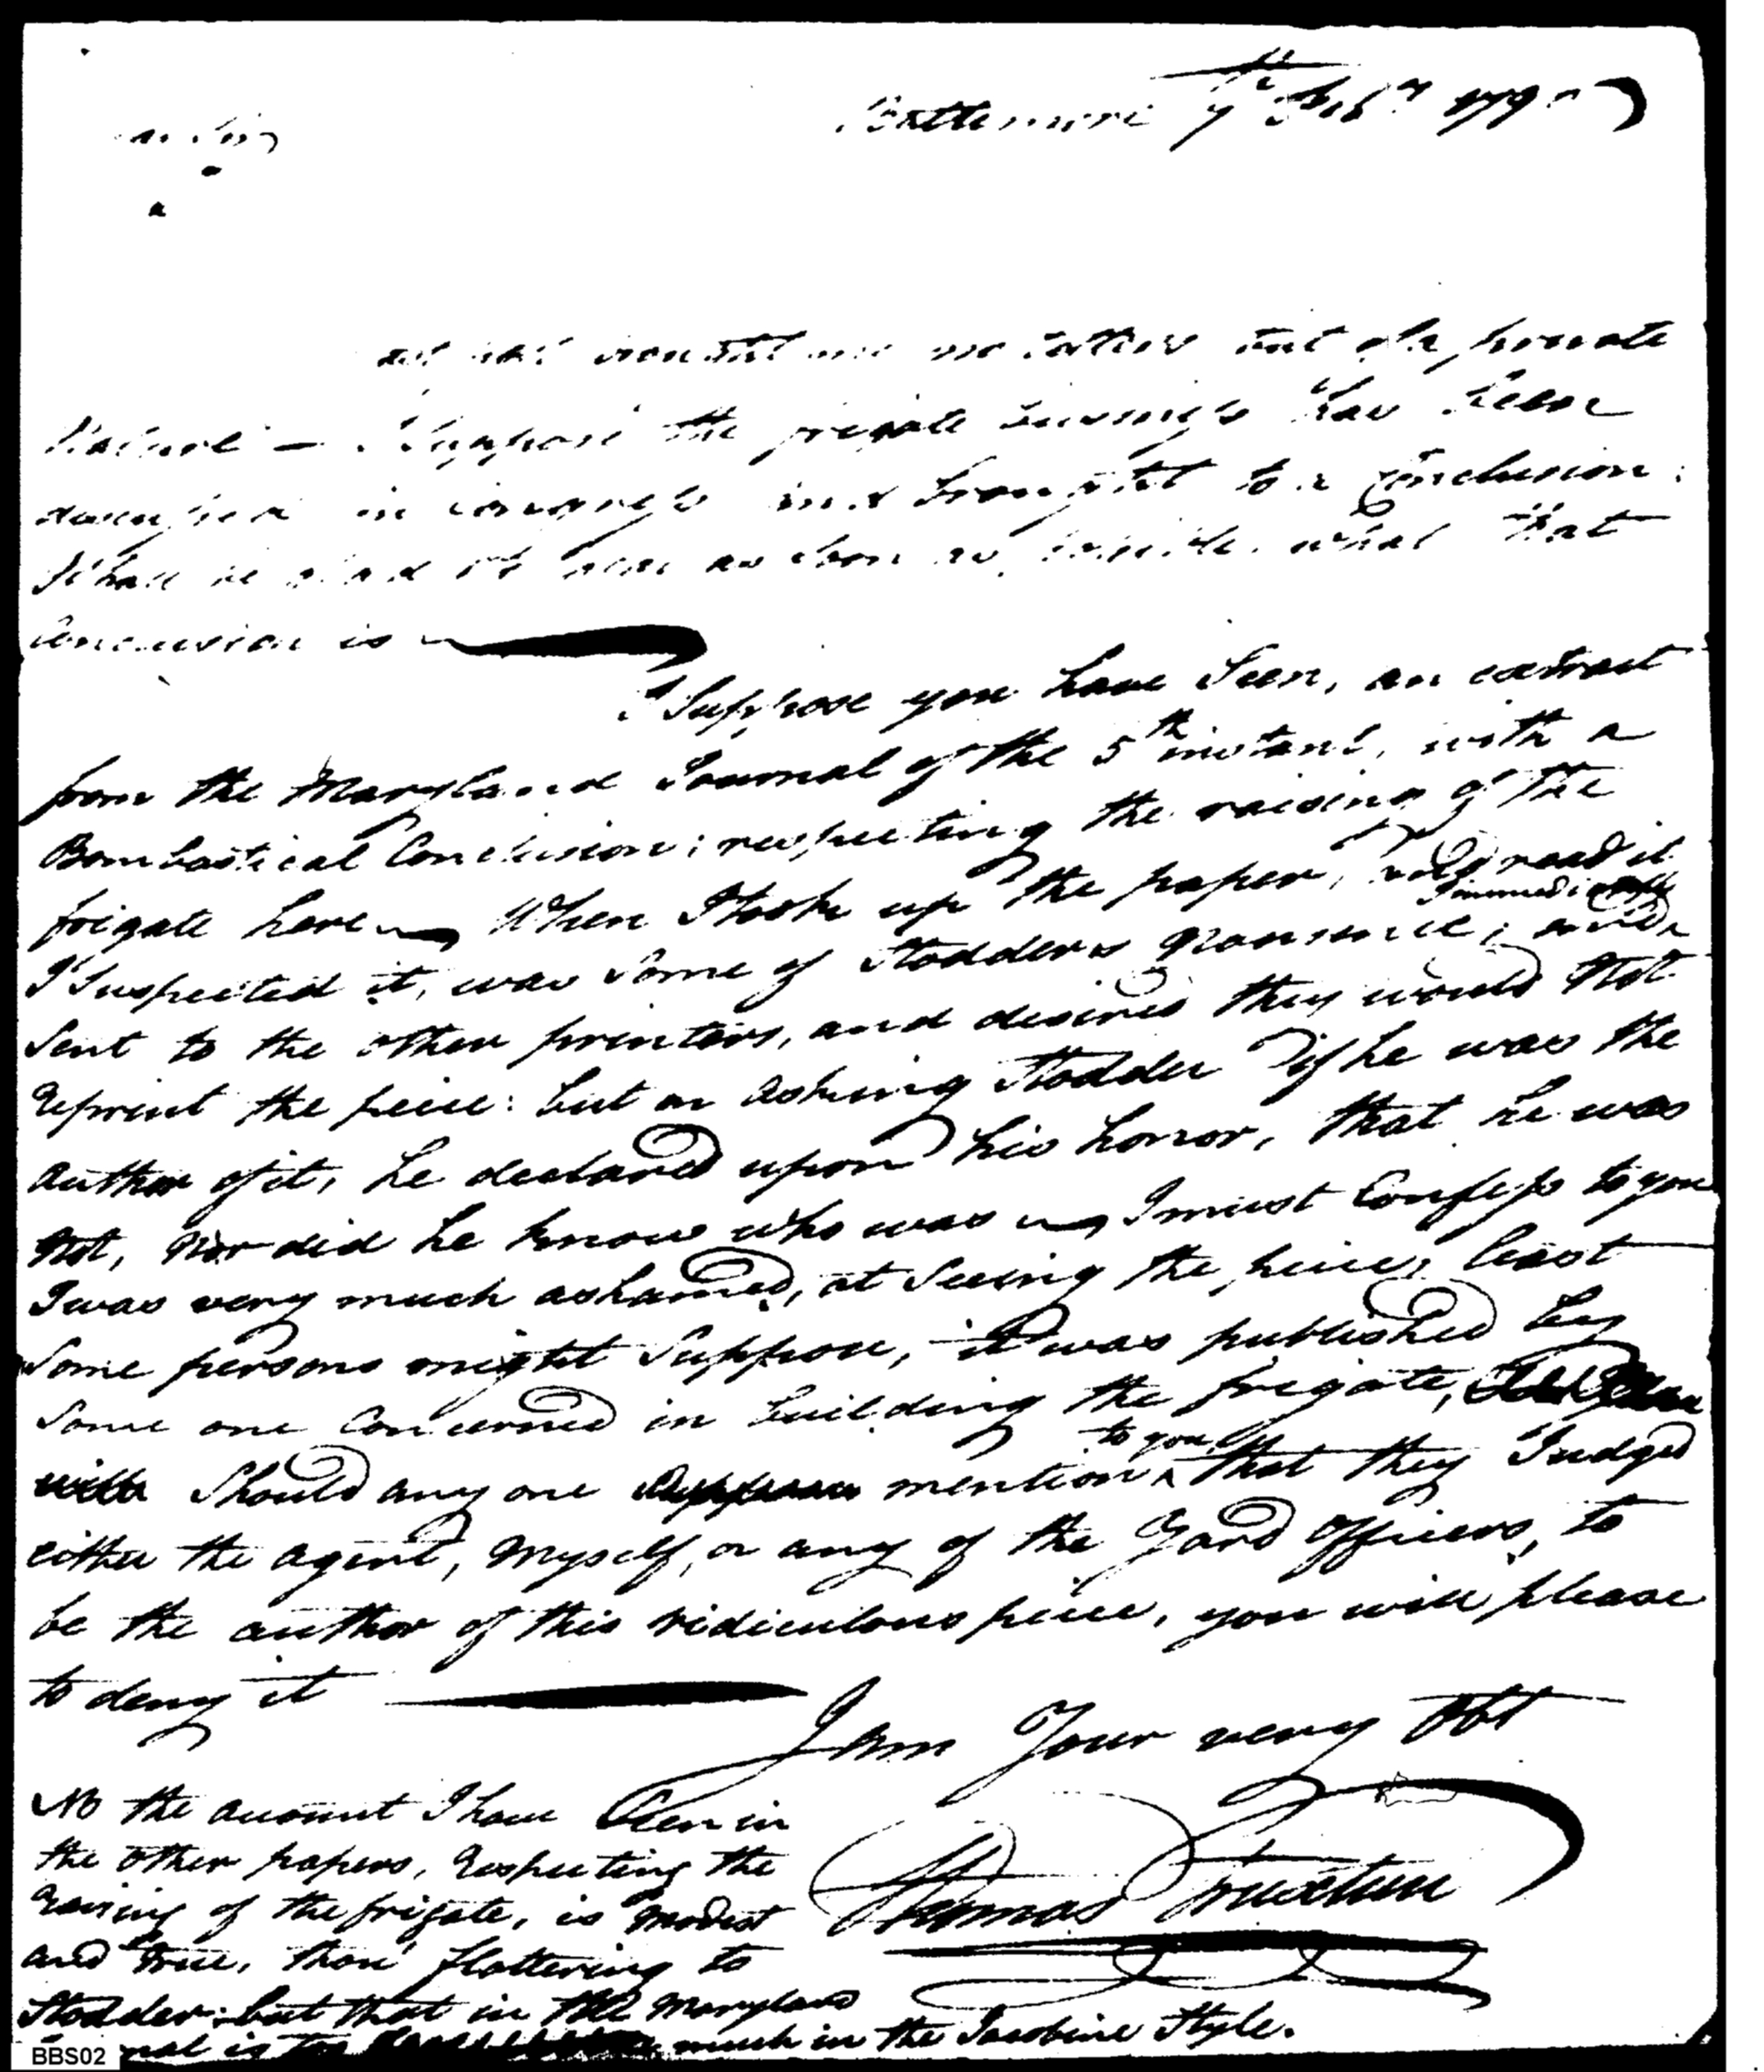 Baltemore 7th Feby 179
Dear Sir
last post brought me no letters but of a private
Nature — I Suppose the frigate business has been
in Congress and brought to a Conclusion.
I Shall be glad to hear as Soon as possible, what that
Conclusion is
I Suppose you have Seen, an extract
from the Maryland Journal of the 5th instant, with a
Bombastical Conclusion; respecting the raising of the
frigate here — When I took up the paper, and read it
I Suspected it, was Some of Stodders nonsence; and immediately
Sent to the other printers, and desired they would Not
reprint the peice: but on asking Stodder if he was the
author of it, he declared upon his honor, that he was
Not, Nor did he know who was — I must Confess to you
I was very much ashamed, at Seeing the peice, least
Some persons might Suppose, it was published by
Some one Concerned in building the frigate,
Should any one mention to you that they Judged
either the agent, Myself, or any of the Yard Officers, to
be the author of this ridiculous peice, you will please
to deny it
I am Your very Obt
Thomas Truxtun
NB the account I have Seen in
the other papers, respecting the
raising of the frigate, is Modest
and True, thou' flattering to
Stodder: but that in the Maryland
nal is too much in the Jacobine Style.
BBS02